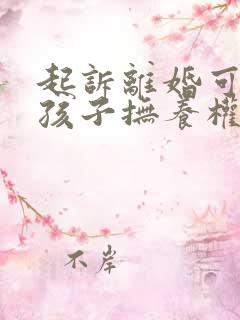 起訴離婚可
孩子撫養權
不岸